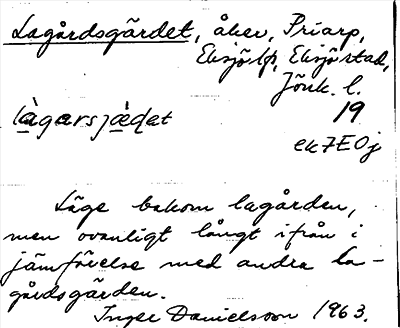 Lagårdsgärdet, åker, Priarp,
Eksjö lfs, Eksjö stad,
Jönk. l.
làgarsjæ̀ḍət 19
ek7E0j
Läge bakom lagården,
men ovanligt långt ifrån i
jämförelse med andra la-
gårdsgärden.
Inger Danielsson 1963.